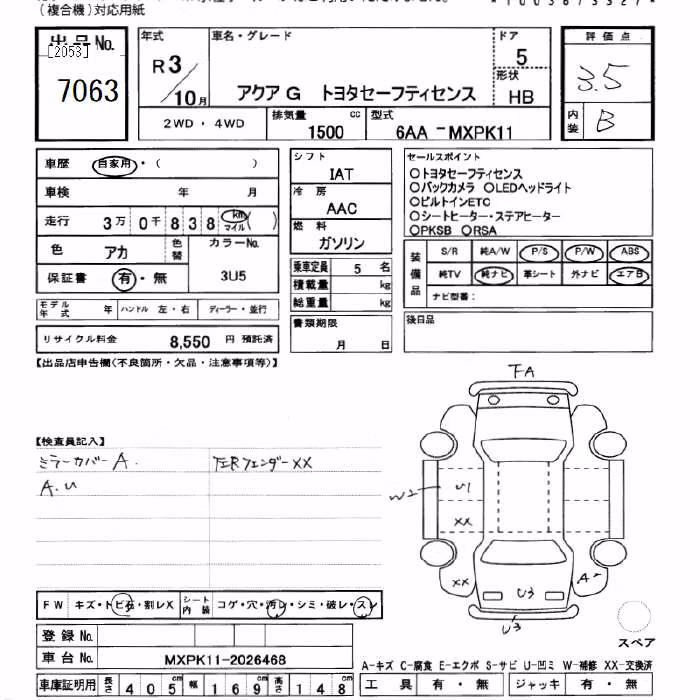 （複合機）対応用紙
出品No. [2053] 7063
年式 R3/10月
車名・グレード アクア G トヨタセーフティセンス
ドア 5
形状 HB
評価点 3.5
内装 B
2WD・4WD
排気量 1500 cc
型式 6AA－MXPK11
車歴 自家用・（ ）
車検 年 月
走行 3万0千838 km マイル ( )
色 アカ 色替
カラーNo. 3U5
保証書 有・無
モデル年式 年 ハンドル 左・右 ディーラー・並行
リサイクル料金 8,550 円 預託済
シフト IAT
冷房 AAC
燃料 ガソリン
乗車定員 5 名
積載量 kg
総重量 kg
書類期限 月 日
セールスポイント
○トヨタセーフティセンス
○バックカメラ ○LEDヘッドライト
○ビルトインETC
○シートヒーター・ステアヒーター
○PKSB ○RSA
装備品 S/R 純A/W P/S P/W ABS
純TV 純ナビ 革シート 外ナビ エアB
ナビ型番：
後日品
【出品店申告欄（不良箇所・欠品・注意事項等）】
【検査員記入】
ミラーカバー A.
A.U
左Rフェンダー XX
FA
W2
U1
XX
XX
A2
U3
U3
スペア
FW キズ・トビ石・割レX
シート内装 コゲ・穴・汚レ・シミ・破レ・スレ
登録No.
車台No. MXPK11-2026468
A-キズ C-腐食 E-エクボ S-サビ U-凹ミ W-補修 XX-交換済
車庫証明用 長さ 405 cm 幅 169 cm 高さ 148 cm
工具 有・無 ジャッキ 有・無